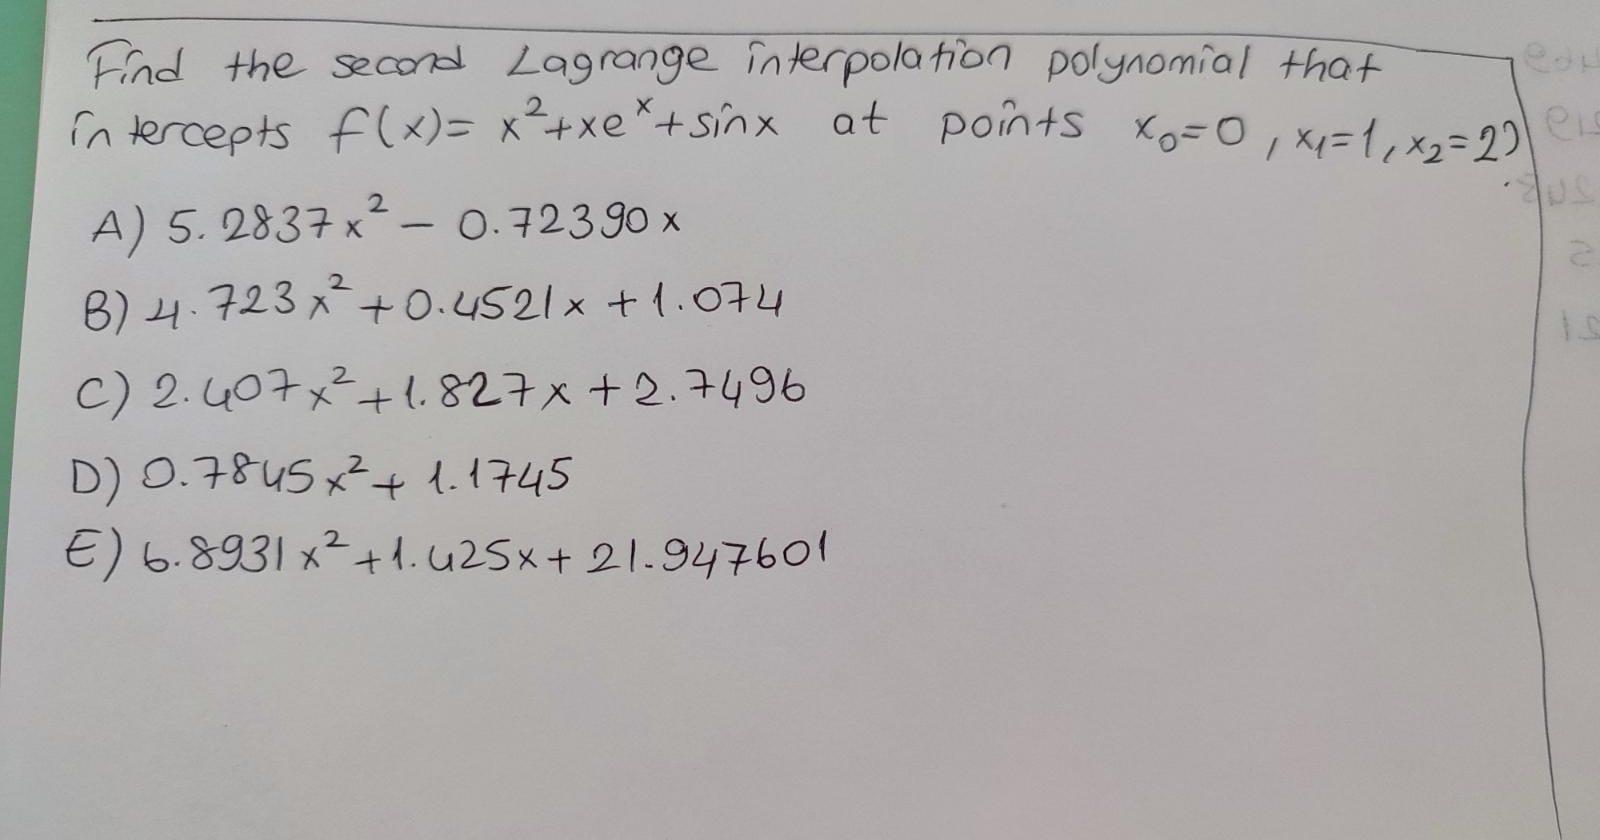 Find the second Lagrange interpolation polynomial that
intercepts f(x)= x²+xeˣ+sinx at points x₀=0, x₁=1, x₂=2)
A) 5.2837x² - 0.72390x
B) 4.723x² + 0.4521x + 1.074
C) 2.407x² + 1.827x + 2.7496
D) 0.7845x² + 1.1745
E) 6.8931x² + 1.425x + 21.947601